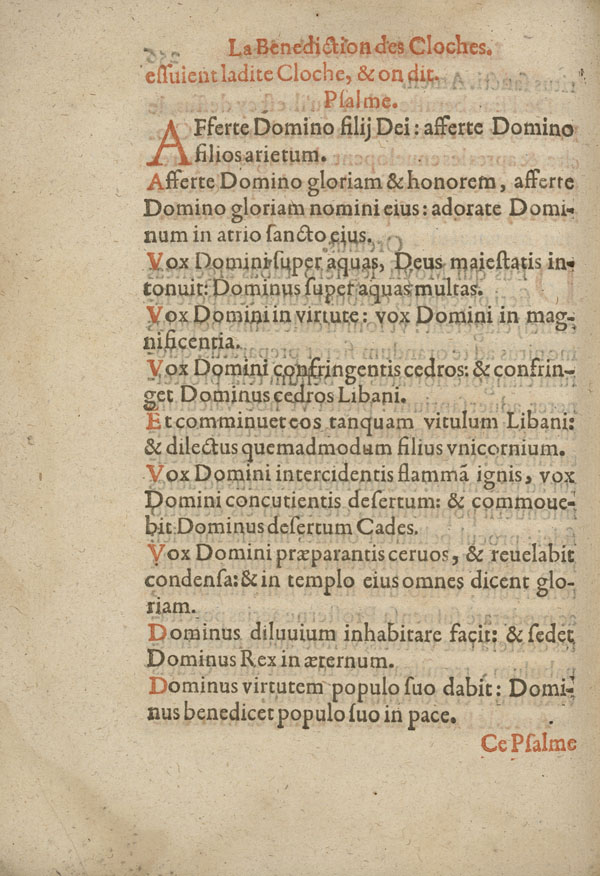 La Benediction des Cloches.
eſſuient ladite Cloche, & on dit.
Pſalme.
AFferte Domino filij Dei: afferte Domino
filios arietum.
Afferte Domino gloriam & honorem, afferte
Domino gloriam nomini eius: adorate Domi-
num in atrio ſancto eius.
Vox Domini ſuper aquas, Deus maieſtatis in-
tonuit: Dominus ſuper aquas multas.
Vox Domini in virtute: vox Domini in mag-
nificentia.
Vox Domini confringentis cedros: & confrin-
get Dominus cedros Libani.
Et comminuet eos tanquam vitulum Libani:
& dilectus quemadmodum filius vnicornium.
Vox Domini intercidentis flammã ignis, vox
Domini concutientis deſertum: & commoue-
bit Dominus deſertum Cades.
Vox Domini præparantis ceruos, & reuelabit
condenſa: & in templo eius omnes dicent glo-
riam.
Dominus diluuium inhabitare facit: & ſedet
Dominus Rex in æternum.
Dominus virtutem populo ſuo dabit: Domi-
nus benedicet populo ſuo in pace.
Ce Pſalme